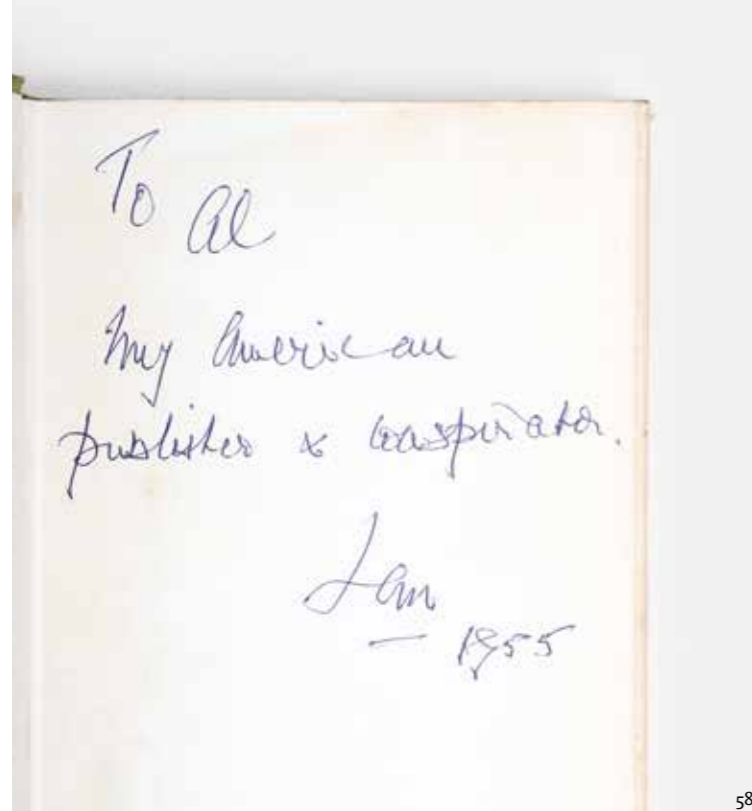 To Al
My American
publisher & conspirator.
Ian
— 1955
58